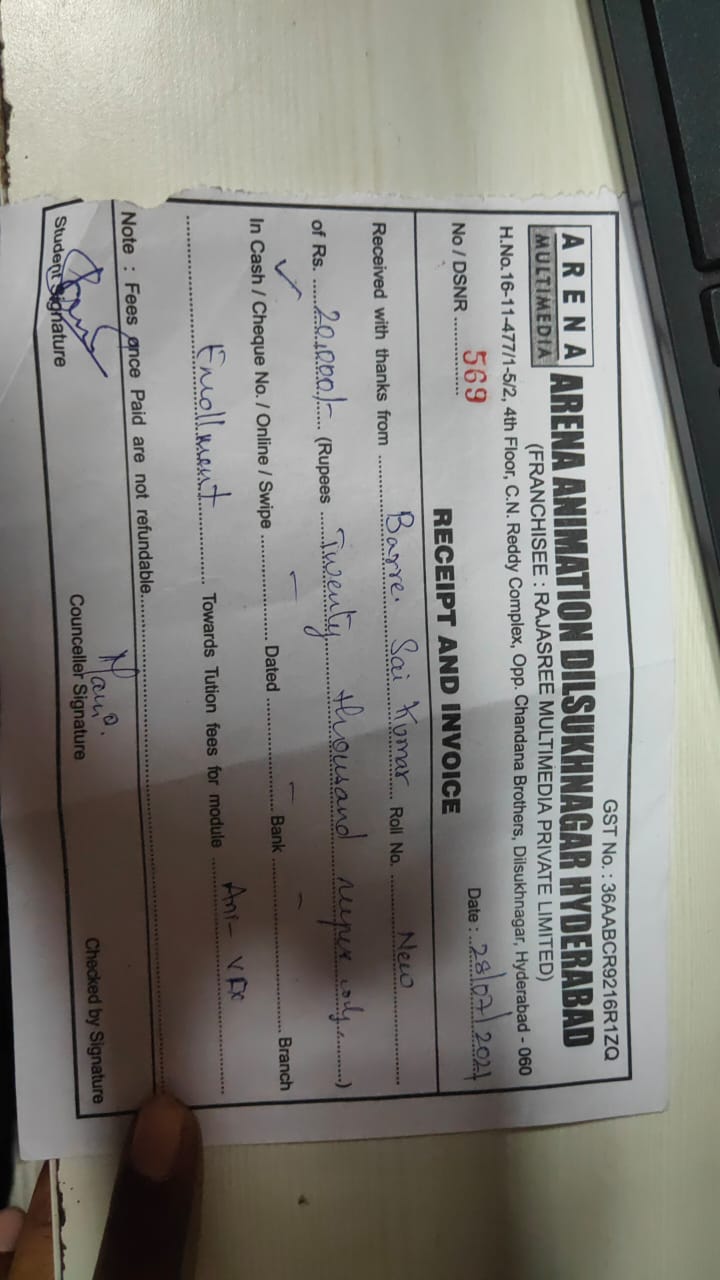 GST No. : 36AABCR9216R1ZQ
ARENA MULTIMEDIA
ARENA ANIMATION DILSUKHNAGAR HYDERABAD
(FRANCHISEE : RAJASREE MULTIMEDIA PRIVATE LIMITED)
H.No.16-11-477/1-5/2, 4th Floor, C.N. Reddy Complex, Opp. Chandana Brothers, Dilsukhnagar, Hyderabad - 060
No / DSNR ........... 569 Date : ..28/07/2021
RECEIPT AND INVOICE
Received with thanks from ........ Barre. Sai Kumar ........ Roll No. ........ New ........
of Rs. ...... 20,000/- ...... (Rupees ...... Twenty thousand rupees only. ........)
In Cash / Cheque No. / Online / Swipe ........ – ........ Dated ........ – ........ Bank ........ – ........ Branch
........ Enrollment ........ Towards Tution fees for module ........ Ani- VFX ........
Note : Fees once Paid are not refundable........
Student Signature Counceller Signature Checked by Signature